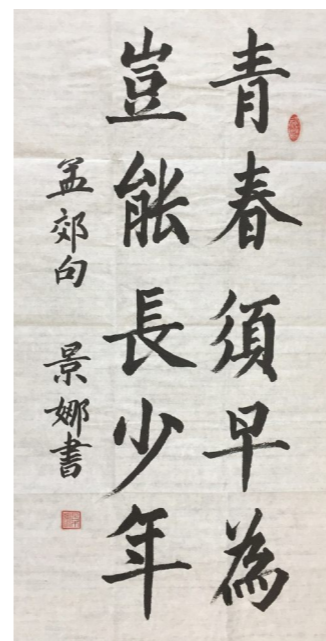 青春須早為
豈能長少年
孟郊句 景娜書